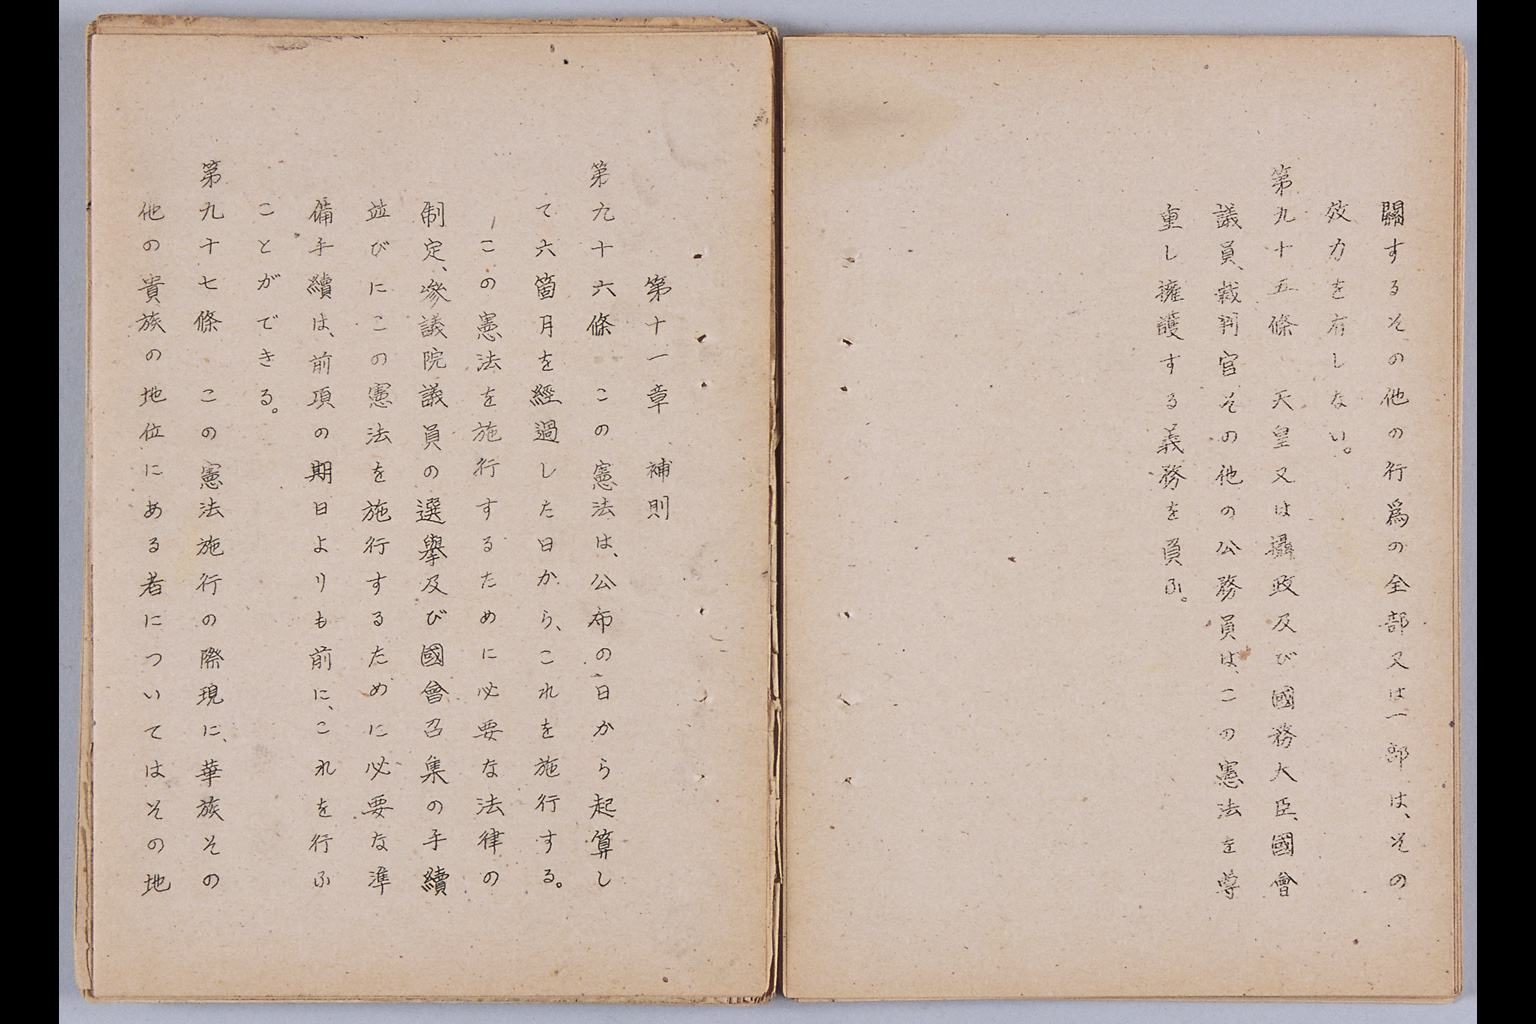 關するその他の行爲の全部又は一部は、その
效力を有しない。
第九十五條　天皇又は攝政及び國務大臣、國會
議員、裁判官その他の公務員は、この憲法を尊
重し擁護する義務を負ふ。
第十一章　補則
第九十六條　この憲法は、公布の日から起算し
て六箇月を經過した日から、これを施行する。
この憲法を施行するために必要な法律の
制定、參議院議員の選擧及び國會召集の手續
並びにこの憲法を施行するために必要な準
備手續は、前項の期日よりも前に、これを行ふ
ことができる。
第九十七條　この憲法施行の際現に、華族その
他の貴族の地位にある者についてはその地